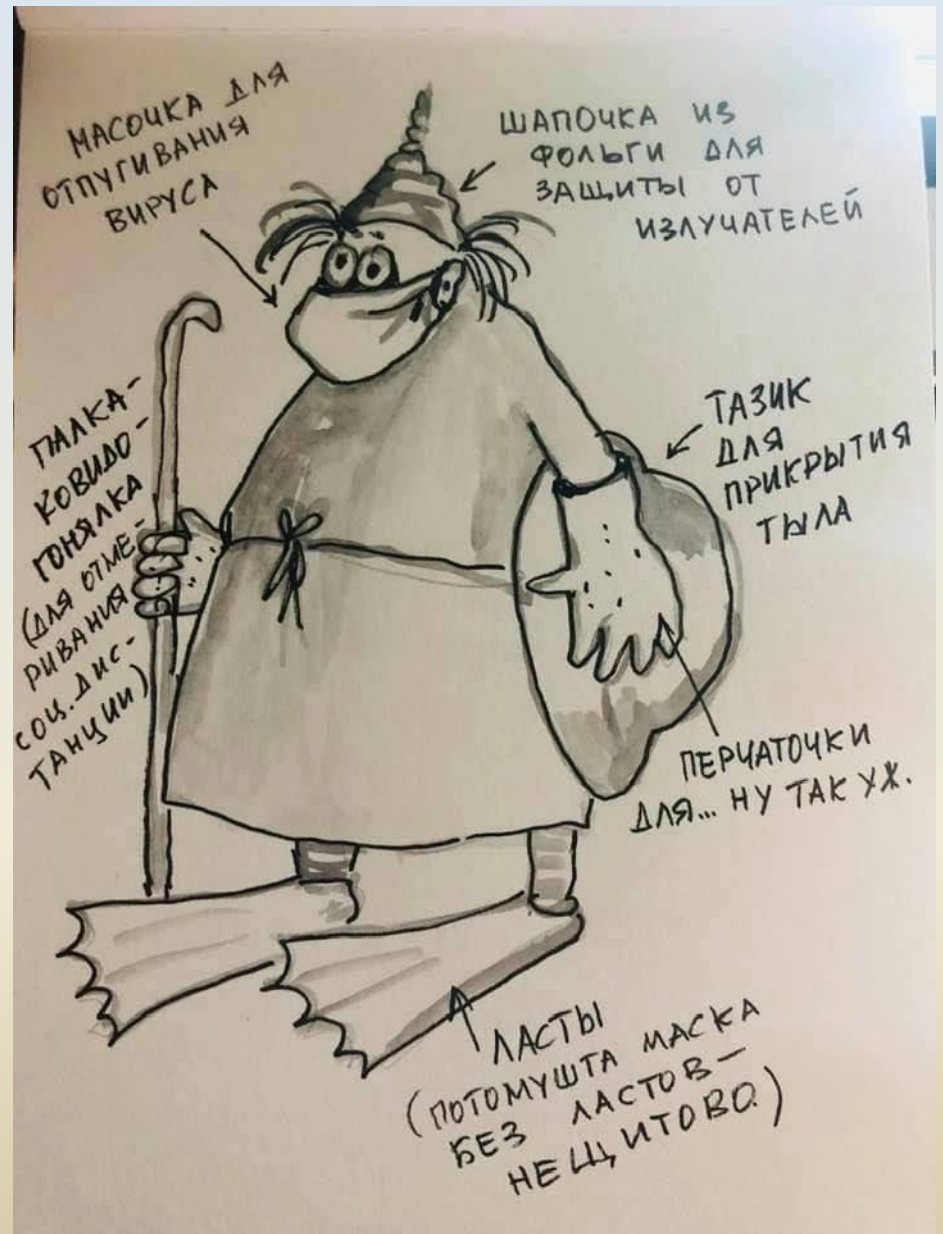 МАСОЧКА ДЛЯ
ОТПУГИВАНИЯ
ВИРУСА
ШАПОЧКА ИЗ
ФОЛЬГИ ДЛЯ
ЗАЩИТЫ ОТ
ИЗЛУЧАТЕЛЕЙ
ПАЛКА-
КОВИДО-
ГОНЯЛКА
(ДЛЯ ОТМЕ-
РИВАНИЯ
СОЦ. ДИС-
ТАНЦИИ)
ТАЗИК
ДЛЯ
ПРИКРЫТИЯ
ТЫЛА
ПЕРЧАТОЧКИ
ДЛЯ... НУ ТАК УЖ.
ЛАСТЫ
(ПОТОМУШТА МАСКА
БЕЗ ЛАСТОВ-
НЕЩИТОВО.)